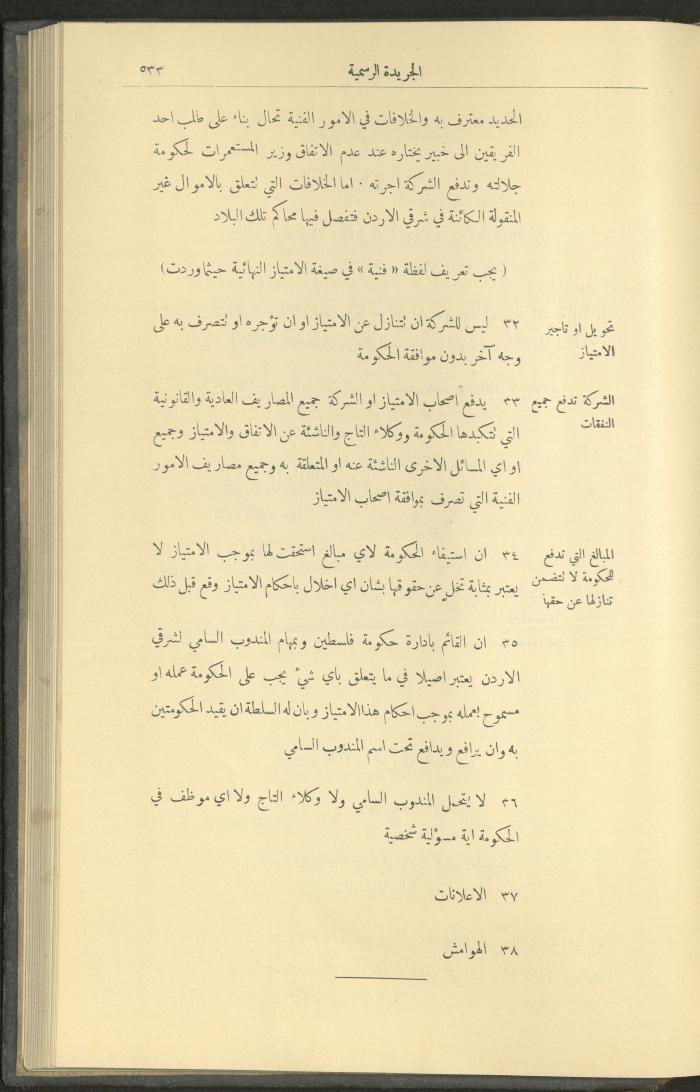 الجريدة الرسمية
٥٣٣
الحديد معترف به والخلافات في الامور الفنية تحال بناء على طلب احد
الفريقين الى خبير يختاره عند عدم الاتفاق وزير المستعمرات لحكومة
جلالته وتدفع الشركة اجرته · اما الخلافات التي تتعلق بالاموال غير
المنقولة الكائنة في شرقي الاردن فتفصل فيها محاكم تلك البلاد
( يجب تعريف لفظة « فنية » في صيغة الامتياز النهائية حيثما وردت)
تحويل او تاجير
الامتياز
٣٢ ليس للشركة ان تتنازل عن الامتياز او ان تؤجره او تتصرف به على
وجه آخر بدون موافقة الحكومة
الشركة تدفع جميع
النفقات
٣٣ يدفع اصحاب الامتياز او الشركة جميع المصاريف العادية والقانونية
التي تتكبدها الحكومة ووكلاء التاج والناشئة عن الاتفاق والامتياز وجميع
او اي المسائل الاخرى الناشئة عنه او المتعلقة به وجميع مصاريف الامور
الفنية التي تصرف بموافقة اصحاب الامتياز
المبالغ التي تدفع
للحكومة لا تتضمن
تنازلها عن حقها
٣٤ ان استيفاء الحكومة لاي مبالغ استحقت لها بموجب الامتياز لا
يعتبر بمثابة تخلٍ عن حقوقها بشان اي اخلال باحكام الامتياز وقع قبل ذلك
٣٥ ان القائم بادارة حكومة فلسطين وبمهام المندوب السامي لشرقي
الاردن يعتبر اصيلا في ما يتعلق باي شيء يجب على الحكومة عمله او
مسموح بعمله بموجب احكام هذا الامتياز وبان له السلطة ان يقيد الحكومتين
به وان يرافع ويدافع تحت اسم المندوب السامي
٣٦ لا يتحمل المندوب السامي ولا وكلاء التاج ولا اي موظف في
الحكومة اية مسؤلية شخصية
٣٧ الاعلانات
٣٨ الهوامش